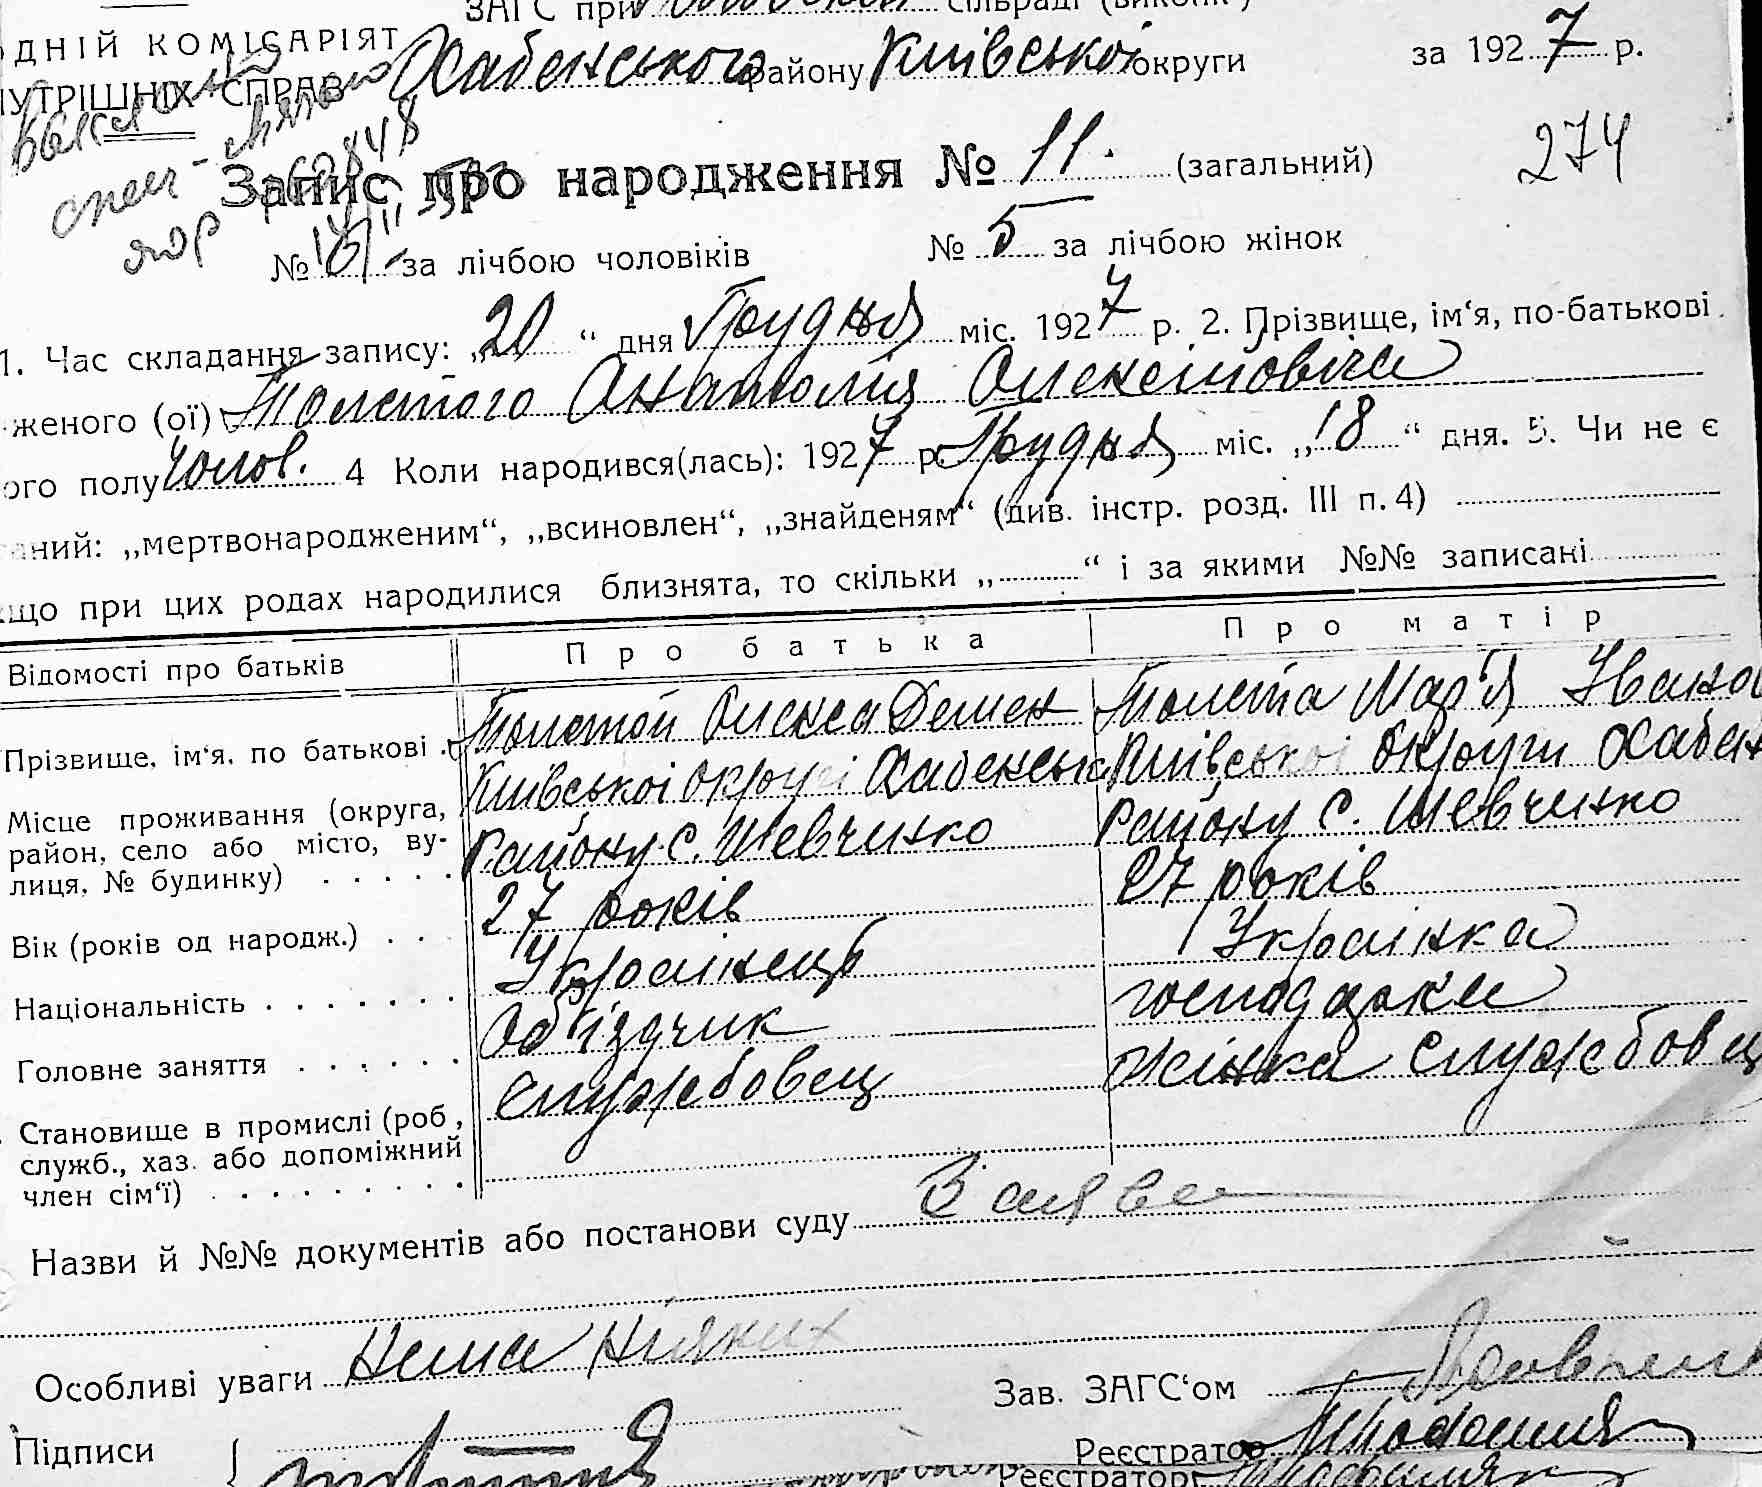 ЗАГС при сільраді (виконк )
ОДНІЙ КОМІСАРІЯТ
Хабенського району Київської округи за 1927 р.
НУТРІШНІХ СПРАВ
Запис про народження № 11. (загальний) 274
№ за лічбою чоловіків № 5 за лічбою жінок
1. Час складання запису: „20“ дня Грудня міс. 1927 р. 2. Прізвище, ім‘я, по-батькові
женого (ої) Толстого Анатолія Олексійовіча
ого полу чолов. 4 Коли народився(лась): 1927 р. Грудня міс. „18“ дня. 5. Чи не є
аний: „мертвонародженим“, „всиновлен“, „знайденям“ (див. інстр. розд. III п. 4)
що при цих родах народилися близнята, то скільки „ “ і за якими №№ записані
Відомості про батьків Про батька Про матір
Прізвище, ім‘я, по батькові Толстой Олекса Демен Толста Мар'я Івано
Місце проживання (округа, район, село або місто, ву- лиця, № будинку) Київської округи Хабенськ Київської округи Хабен
району с. Шевченко району с. Шевченко
Вік (років од народж.) 27 років 27 років
Національність Українець Українка
Головне заняття Об'їздчик господарка
Становище в промислі (роб, служб., хаз. або допоміжний член сім‘ї) службовец жінка службовец
Назви й №№ документів або постанови суду Заява
Особливі уваги Нема ніяких
Зав. ЗАГС‘ом
Підписи
Реєстратор
Реєстратор